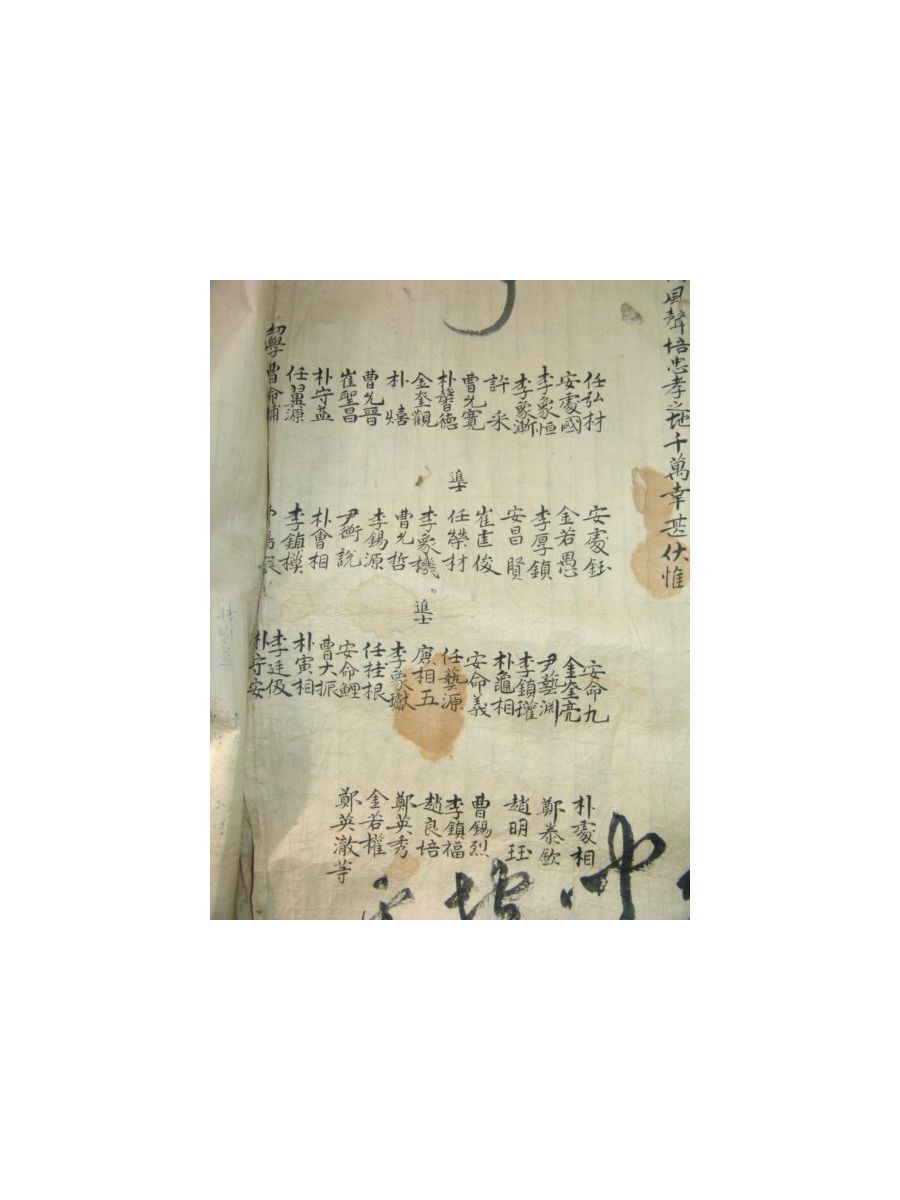 風聲培忠孝之地千萬幸甚伏惟
任弘材
安處國
李象恒
李象漸
許采
曹允寬
朴馨德
金奎觀
朴燨
曹允晋
崔聖昌
朴守益
任翼源
幼學 曹命
安處鈺
金若愚
李厚鎮
安昌賢
崔俊
進士
任榮材
李象機
曹允哲
李錫源
尹衡說
朴會相
李鎮模
安命九
金奎亮
尹藝淵
李鎮瓘
朴龜相
安命義
任藝源
進士
相五
李象
任桂根
安命鯉
曹大振
朴寅相
李廷伋
朴守安
朴處相
鄭泰欽
趙明珏
曹錫烈
李鎮福
趙良培
鄭英秀
金若權
鄭英澈等